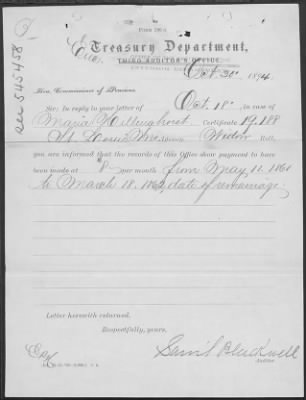 see 545458
Treasury Department,
THIRD AUDITOR'S OFFICE,
Oct. 20", 1894.
Hon. Commissioner of Pensions
Sir: In reply to your letter of Oct. 18", in case of
Maria Certificate 19,188
St. Louis Mo Widow Roll,
you are informed that the records of this Office show payment to have
been made at $8 per month from May 11. 1861
to March 18. date of remarriage.
Letter herewith returned.
Respectfully, yours,
Sam'l Blackwell
Auditor.